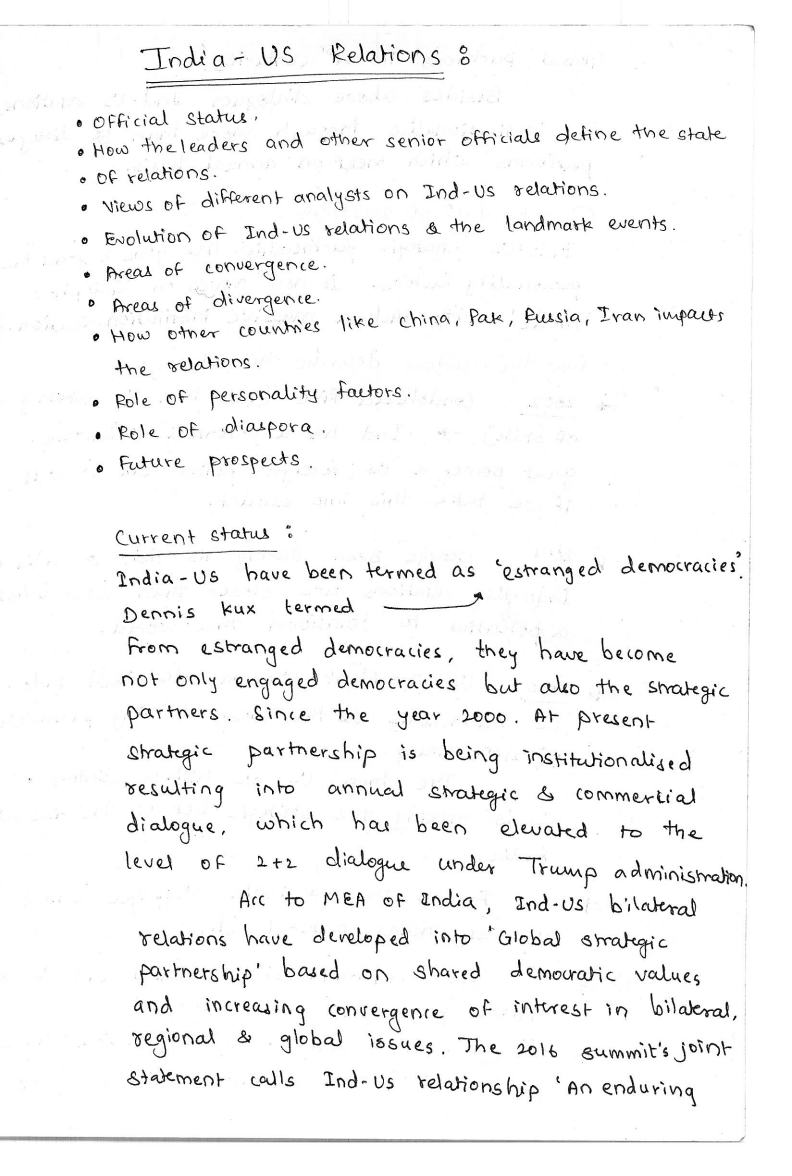 India - US Relations :
• Official status.
• How the leaders and other senior officials define the state
• Of relations.
• Views of different analysts on Ind-US relations.
• Evolution of Ind-US relations & the landmark events.
• Areas of convergence.
• Areas of divergence.
• How other countries like China, Pak, Russia, Iran impacts
the relations.
• Role of personality factors.
• Role of diaspora.
• Future prospects.
Current status :
India - US have been termed as 'estranged democracies'.
Dennis Kux termed
From estranged democracies, they have become
not only engaged democracies but also the strategic
partners. Since the year 2000. At present
strategic partnership is being institutionalised
resulting into annual strategic & commertial
dialogue, which has been elevated to the
level of 2+2 dialogue under Trump administration.
Acc to MEA of India, Ind-US bilateral
relations have developed into 'Global strategic
partnership' based on shared democratic values
and increasing convergence of interest in bilateral,
regional & global issues. The 2016 summit's joint
statement calls Ind-US relationship 'An enduring